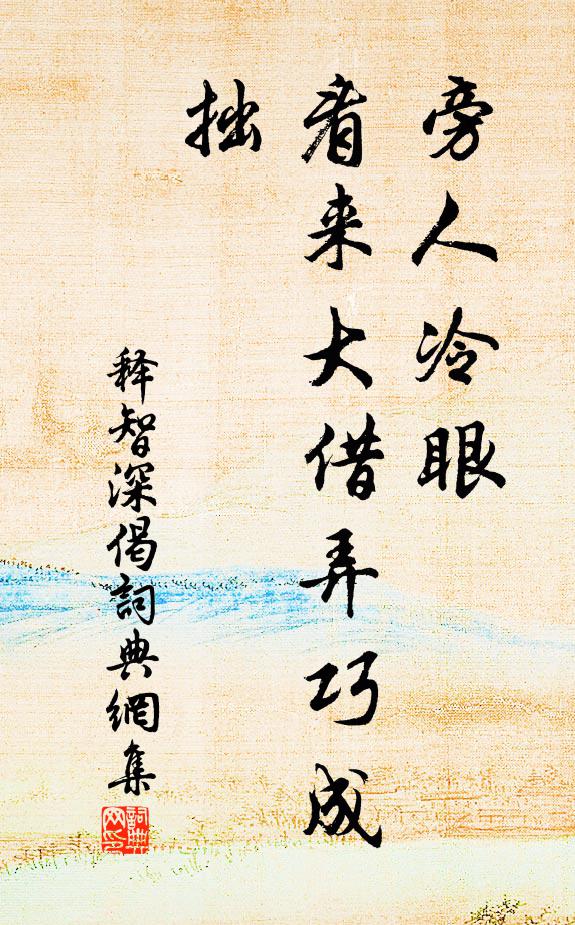 旁人冷眼
看来大借弄巧成
拙
释智深偈詞典網集
詞典网印